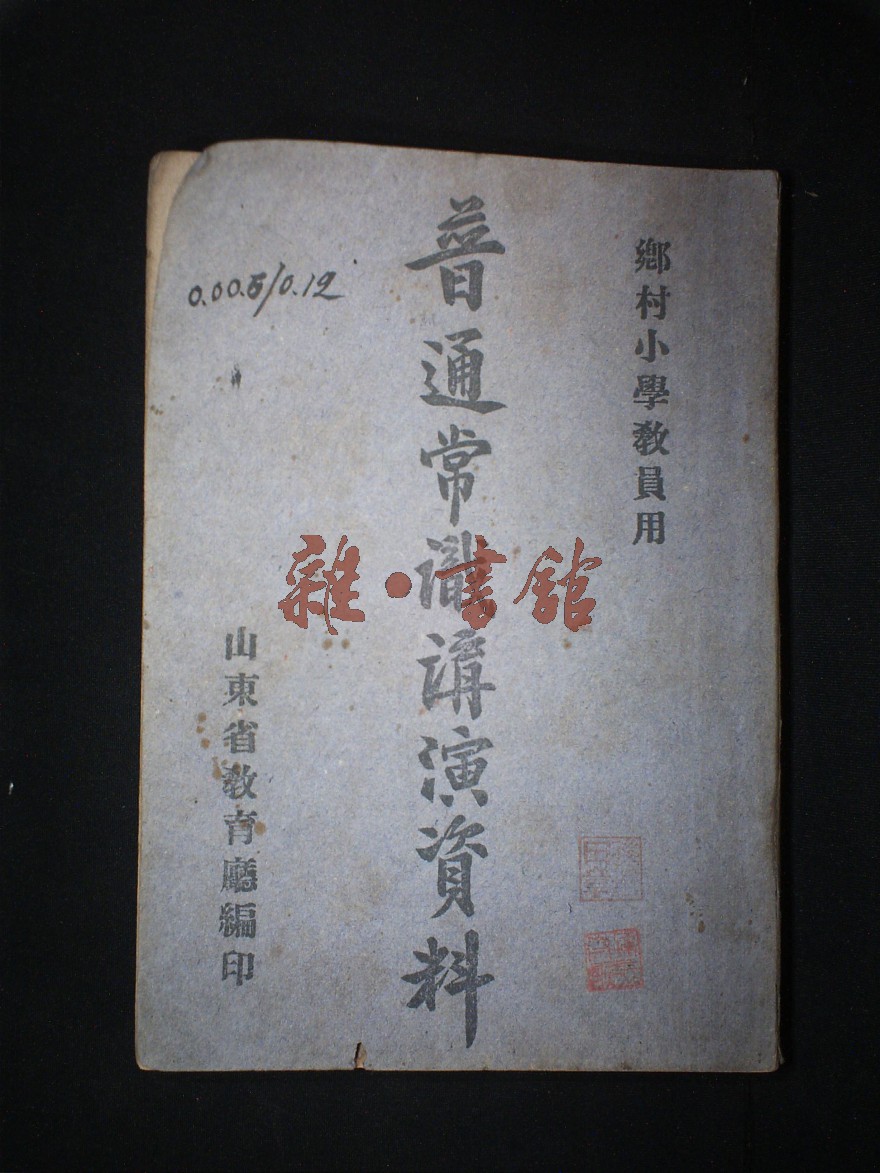 鄉村小學教員用
普通常識講演資料
山東省教育廳編印
0.00.5/0.12
雜·書館